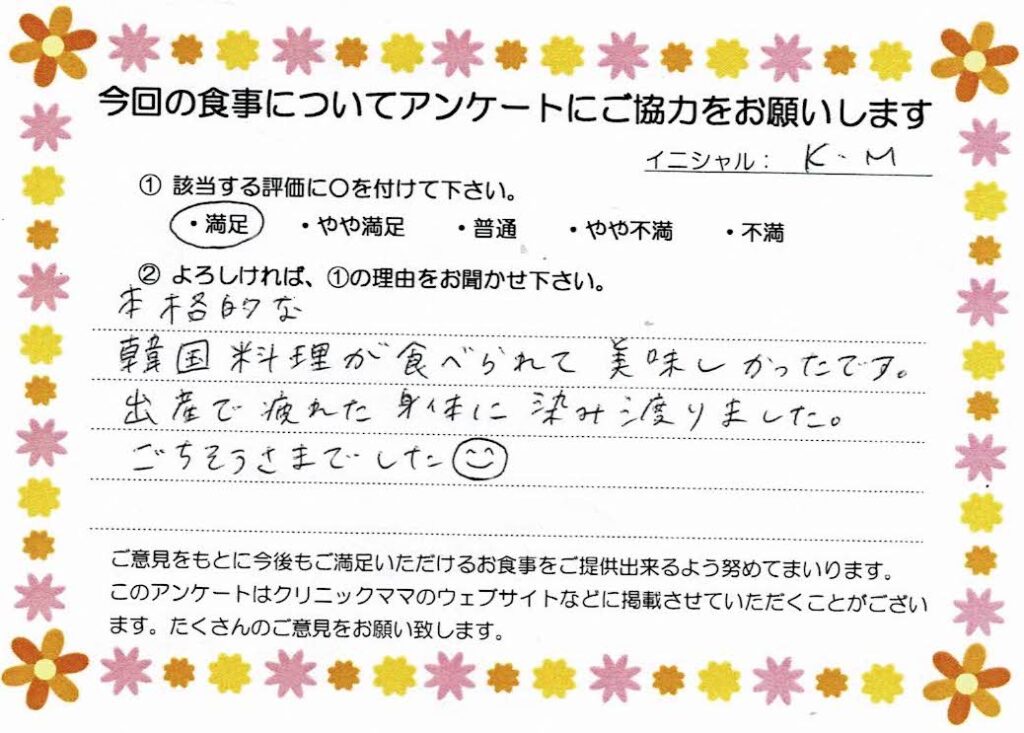 今回の食事についてアンケートにご協力をお願いします
イニシャル： K・M
① 該当する評価に〇を付けて下さい。
・満足 ・やや満足 ・普通 ・やや不満 ・不満
② よろしければ、①の理由をお聞かせ下さい。
本格的な
韓国料理が食べられて美味しかったです。
出産で疲れた身体に染み渡りました。
ごちそうさまでした
ご意見をもとに今後もご満足いただけるお食事をご提供出来るよう努めてまいります。
このアンケートはクリニックママのウェブサイトなどに掲載させていただくことがござい
ます。たくさんのご意見をお願い致します。